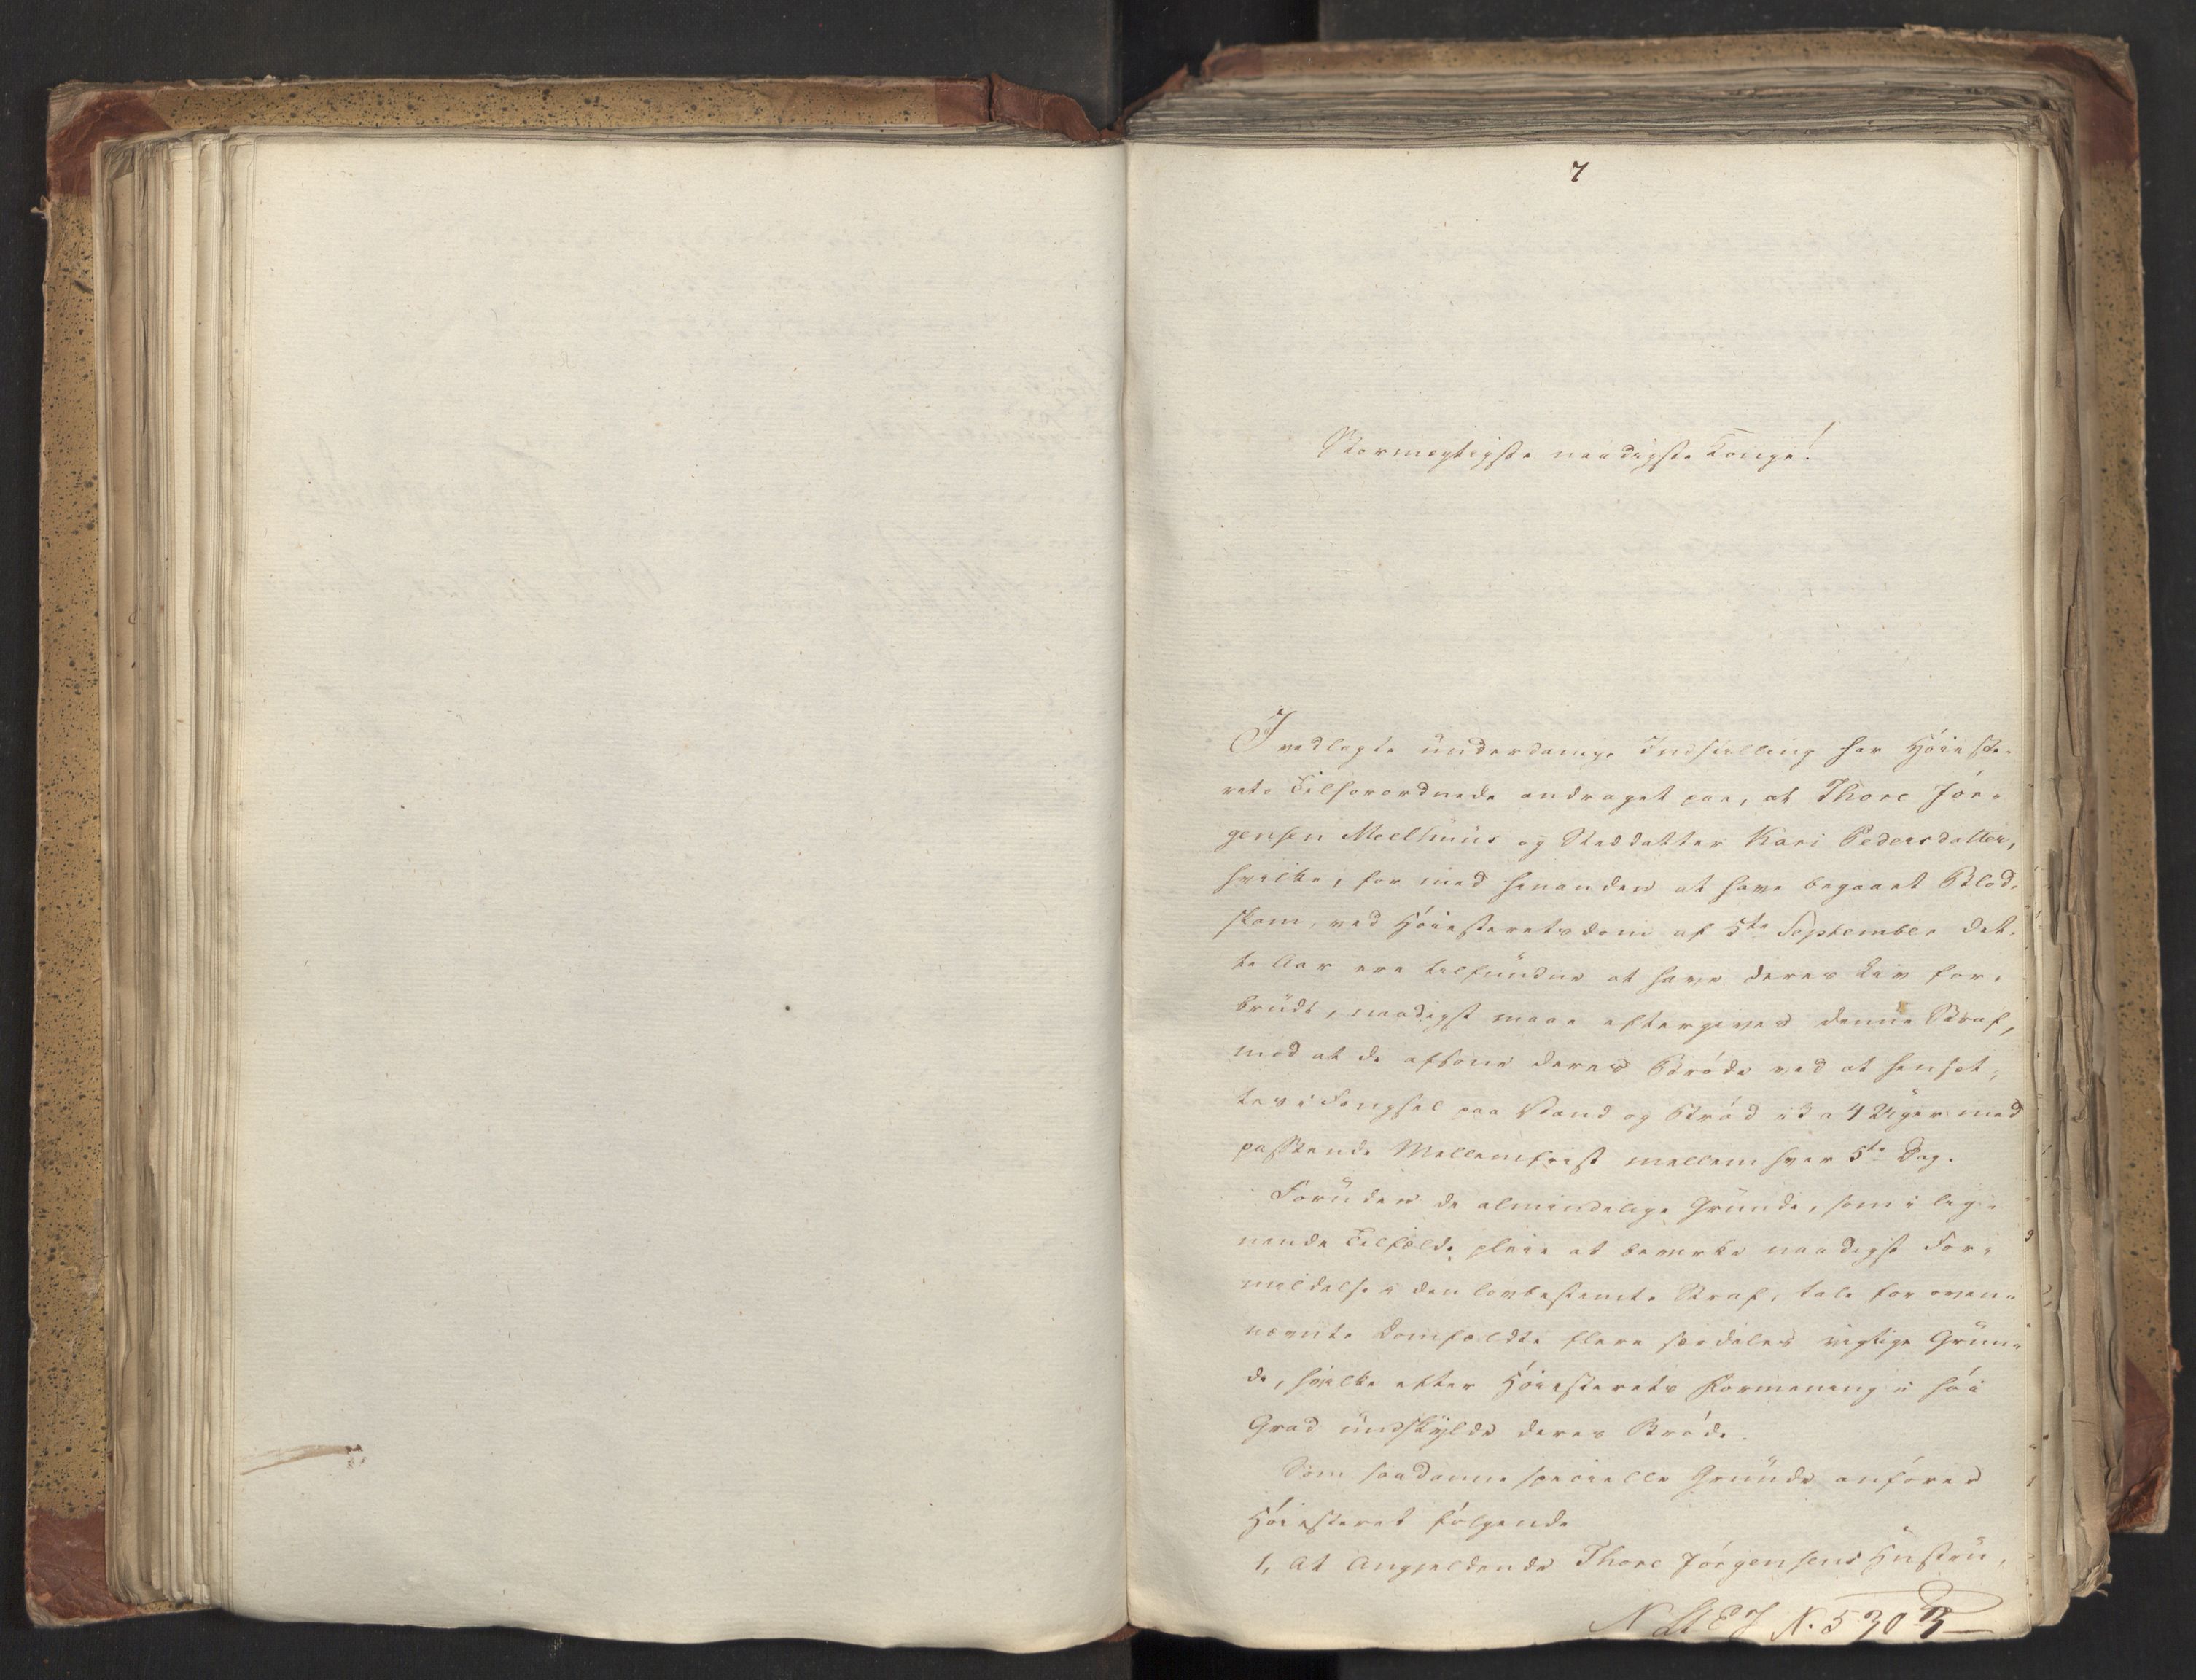 7
Stormægtigste naadigste Konge!
I vedlagte underdanige Indstilling har Høieste-
rets Tilforordnede andraget paa, at Thore Jör-
gensen Moelhuus og Steddatter Kari Pedersdatter,
hvilke, for med hinanden at have begaaet Blod-
skam, ved Höiesteretsdom af 5te September det-
te Aar ere tilfundne at have deres Liv for-
brudt, naadigst maae eftergives denne Straf,
mod at de afsone deres Bröde ved at hensæt-
tes i Fængsel paa Vand og Bröd i 3 a 4 Uger med
passende Mellemfrist mellem hver 5te Dag.
Foruden de almindelige Grunde, som i lig-
nende Tilfælde pleie at bevirke naadigst For-
mildelse i den lovbestemte Straf, tale for oven-
nævnte Domfældte flere særdeles vigtige Grun-
de, hvilke efter Höiesterets Formening i höi
Grad undskylde deres Bröde.
Som saadanne specielle Grunde anförer
Höiesteret fölgende
1, At Angjeldende Thore Jörgensens Hustru,
N. 530